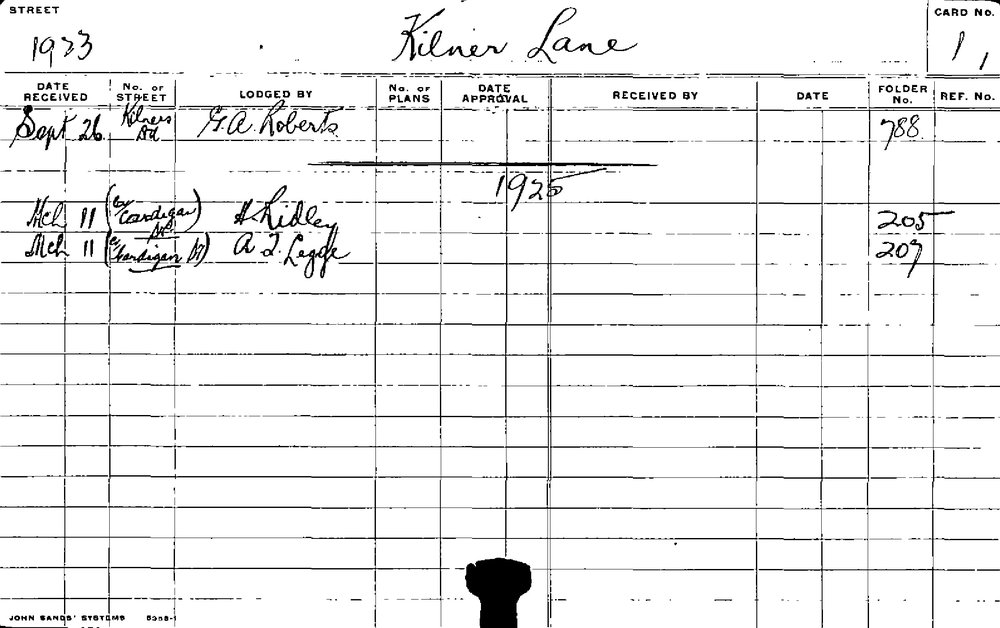 STREET
Kilner Lane
CARD No.
1923
1
DATE RECEIVED No. OF STREET LODGED BY No. OF PLANS DATE APPROVAL RECEIVED BY DATE FOLDER No. REF. No.
Sept 26 Kilners G.A. Roberts 788
1925
Mch 11 (Cardigan) H. Ridley 205
Mch 11 (Cardigan) A. J. Legge 207
JOHN SANDS' SYSTEMS